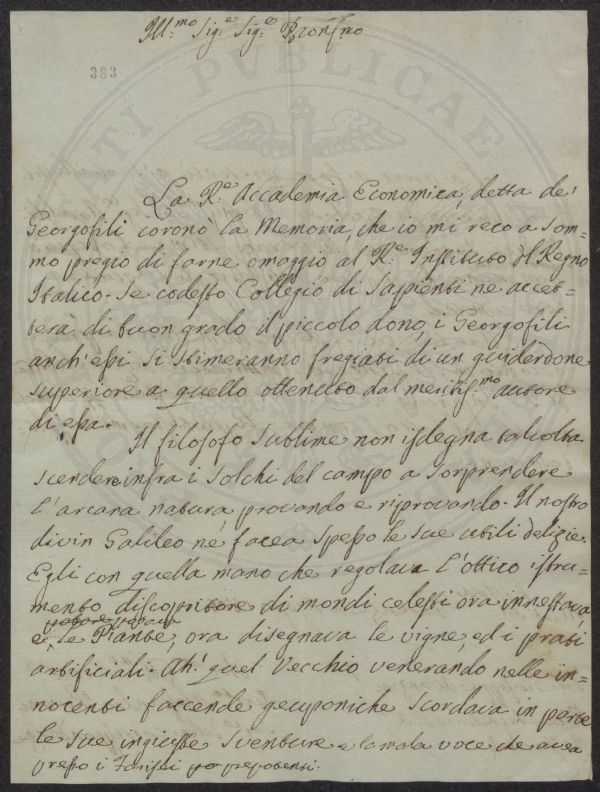 Ill.mo Sig.e Sig.e Pron
383
La R.e Accademia Economica, detta de'
Georgofili coronò la Memoria, che io mi reco a som-
mo pregio di farne omaggio al R.e Instituto del Regno
Italico. Se codesto Collegio di Sapienti ne accet-
terà di buon grado il piccolo dono, i Georgofili
anch'essi si stimeranno fregiati di un guiderdone
superiore a quello ottenuto dal meritiss.mo autore
di essa.
Il filosofo sublime non isdegna talvolta
scendere infra i solchi del campo a sorprendere
l'arcana natura provando e riprovando. Il nostro
divin Galileo ne facea spesso le sue utili delizie.
Egli con quella mano che regolava l'ottico istru-
mento discopritore di mondi celesti ora innestava
e potava
le Piante, ora disegnava le vigne, ed i prati
artificiali. Ah! quel Vecchio venerando nelle in-
nocenti faccende geuponiche scordava in parte
le sue ingiuste sventure e la mala voce che avea
presso i Farisei prepotenti.